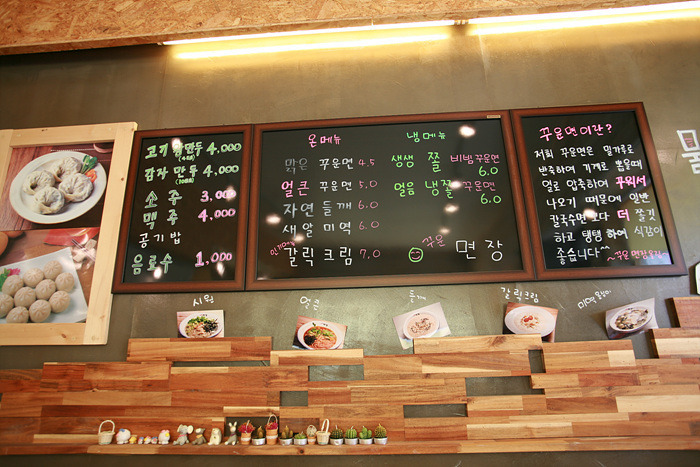 고기 만두 4,000
감자 만두 4,000
소주 3,000
맥주 4,000
공기밥
음료수 1,000
온메뉴
맑은 꾸운면 4.5
얼큰 꾸운면 5.0
자연 들깨 6.0
새알 미역 6.0
인기메뉴
갈릭 크림 7.0
냉메뉴
생생 쫄 비빔꾸운면
6.0
얼음 냉쫄 꾸운면
6.0
꾸운 면장
꾸운면이란?
저희 꾸운면은 밀가루로
반죽하여 기계로 뽑을때
열로 압축하여 꾸워서
나오기 때문에 일반
칼국수면 보다 더 쫄깃
하고 탱탱하여 식감이
좋습니다^^
~꾸운 면장올림~
시원
얼큰
들깨
갈릭크림
미역옹심이